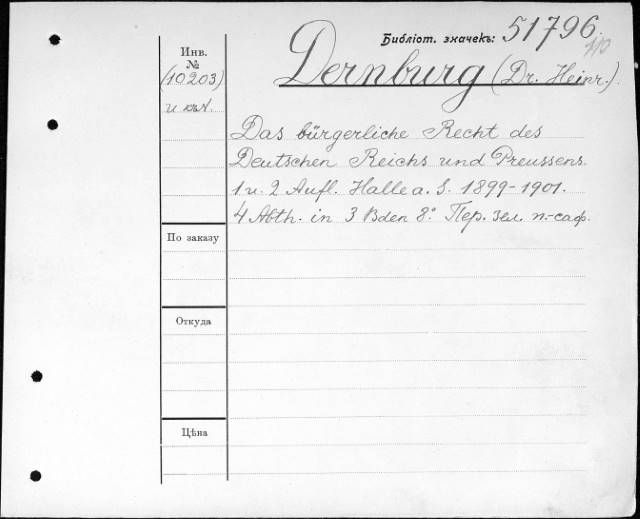 Библіот. значекъ: 51796.
Инв.
№
(10203)
Dernburg (Dr. Heinr.).
Das bürgerliche Recht des
Deutschen Reichs und Preussens.
1 u. 2 Aufl. Halle a. S. 1899-1901.
4 Abth. in 3 Bden 8°. Пер. зел. п.-саф.
По заказу
Откуда
Цѣна